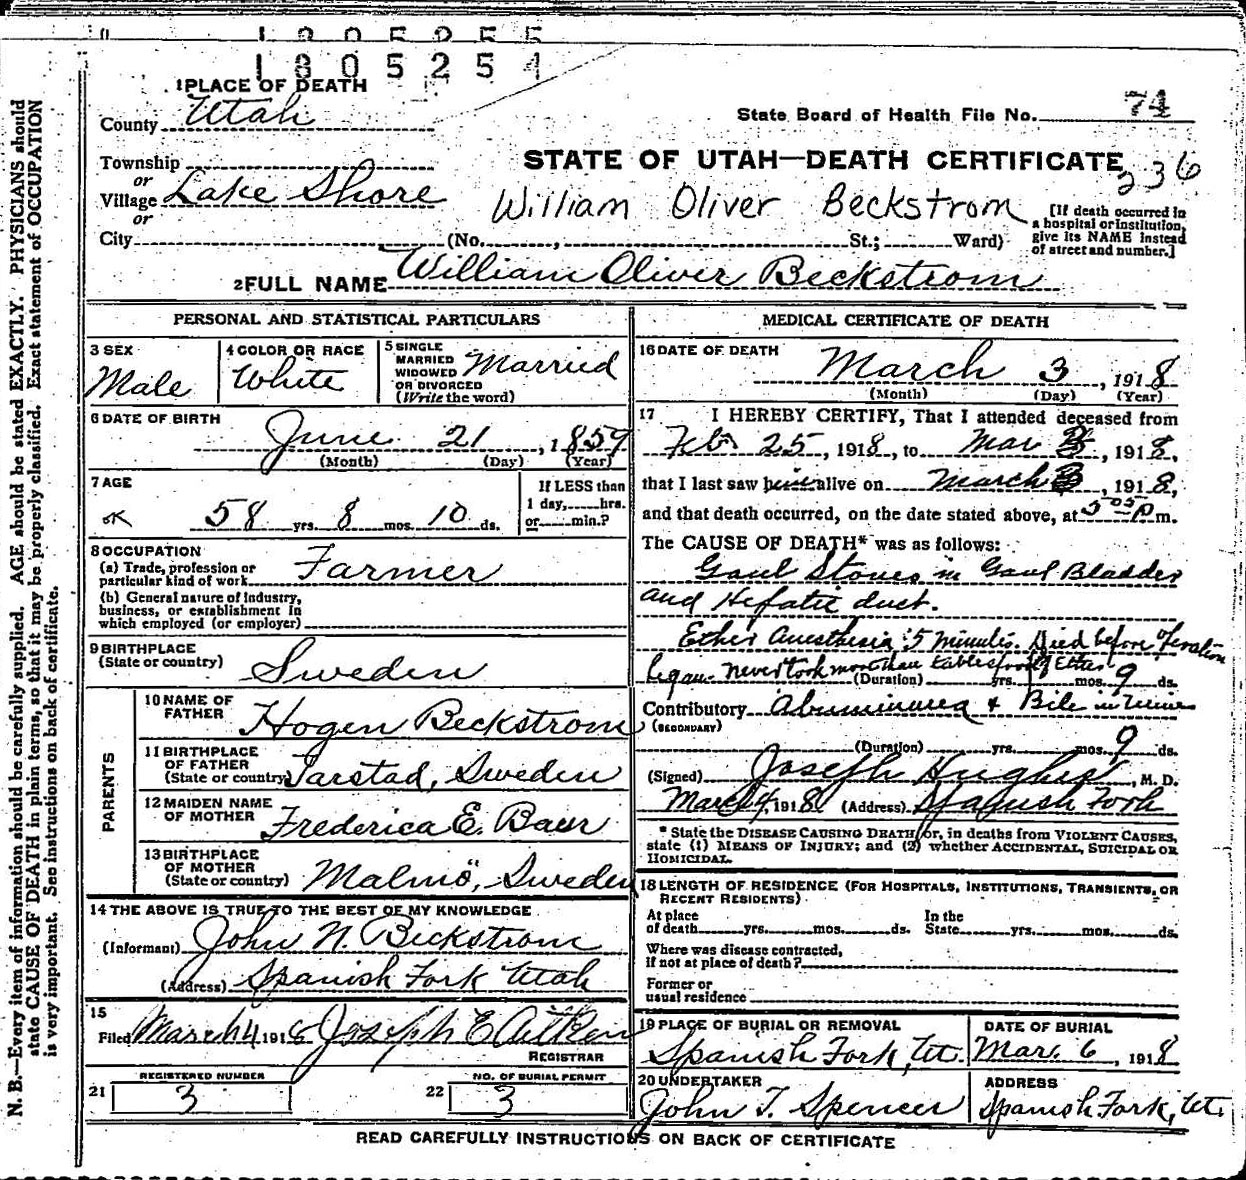 1305255
1305254
1 PLACE OF DEATH
County Utah
State Board of Health File No. 74
Township
or
Village Lake Shore
or
STATE OF UTAH—DEATH CERTIFICATE
236
William Oliver Beckstrom
[If death occurred in
a hospital or institution,
give its NAME instead
of street and number.]
City (No. , St.; Ward)
2 FULL NAME William Oliver Beckstrom
PERSONAL AND STATISTICAL PARTICULARS
3 SEX
Male
4 COLOR OR RACE
White
5 SINGLE
MARRIED
WIDOWED
OR DIVORCED
(Write the word)
Married
6 DATE OF BIRTH
June 21, 1859
(Month) (Day) (Year)
7 AGE
OK 58 yrs. 8 mos. 10 ds.
If LESS than
1 day, hrs.
or min.?
8 OCCUPATION
(a) Trade, profession or
particular kind of work Farmer
(b) General nature of industry,
business, or establishment in
which employed (or employer)
9 BIRTHPLACE
(State or country)
Sweden
PARENTS
10 NAME OF
FATHER
Hogen Beckstrom
11 BIRTHPLACE
OF FATHER
(State or country) Sweden
12 MAIDEN NAME
OF MOTHER
Frederica E. Baer
13 BIRTHPLACE
OF MOTHER
(State or country) Malmö, Sweden
14 THE ABOVE IS TRUE TO THE BEST OF MY KNOWLEDGE
(Informant) John N. Beckstrom
(Address) Spanish Fork Utah
15
Filed March 4 191 Joseph E Aitken
REGISTRAR
REGISTERED NUMBER
21 3
NO. OF BURIAL PERMIT
22 3
MEDICAL CERTIFICATE OF DEATH
16 DATE OF DEATH
March 3, 1918
(Month) (Day) (Year)
17 I HEREBY CERTIFY, That I attended deceased from
Feb 25, 1918, to Mar 3, 1918,
that I last saw him alive on March 3, 1918,
and that death occurred, on the date stated above, at 5 05 p m.
The CAUSE OF DEATH* was as follows:
Gaul Stones in Gaul Bladder
and Hepatic duct.
Ether Anesthesia 5 minutes. Died before operation
began. never took more than tablespoon of Ether
(Duration) yrs. mos. 9 ds.
Contributory Abuminurea + Bile in Urine
(SECONDARY)
(Duration) yrs. mos. 9 ds.
(Signed) Joseph Hughes, M. D.
March 4, 1918 (Address) Spanish Fork
* State the DISEASE CAUSING DEATH, or, in deaths from VIOLENT CAUSES,
state (1) MEANS OF INJURY; and (2) whether ACCIDENTAL, SUICIDAL OR
HOMICIDAL.
18 LENGTH OF RESIDENCE (FOR HOSPITALS, INSTITUTIONS, TRANSIENTS, OR
RECENT RESIDENTS)
At place
of death yrs. mos. ds.
In the
State yrs. mos. ds.
Where was disease contracted,
if not at place of death?
Former or
usual residence
19 PLACE OF BURIAL OR REMOVAL
Spanish Fork, Ut.
DATE OF BURIAL
Mar. 6, 1918
20 UNDERTAKER
John T. Spencer
ADDRESS
Spanish Fork, Ut.
READ CAREFULLY INSTRUCTIONS ON BACK OF CERTIFICATE
N. B.—Every item of information should be carefully supplied. AGE should be stated EXACTLY. PHYSICIANS should
state CAUSE OF DEATH in plain terms, so that it may be properly classified. Exact statement of OCCUPATION
is very important. See instructions on back of certificate.